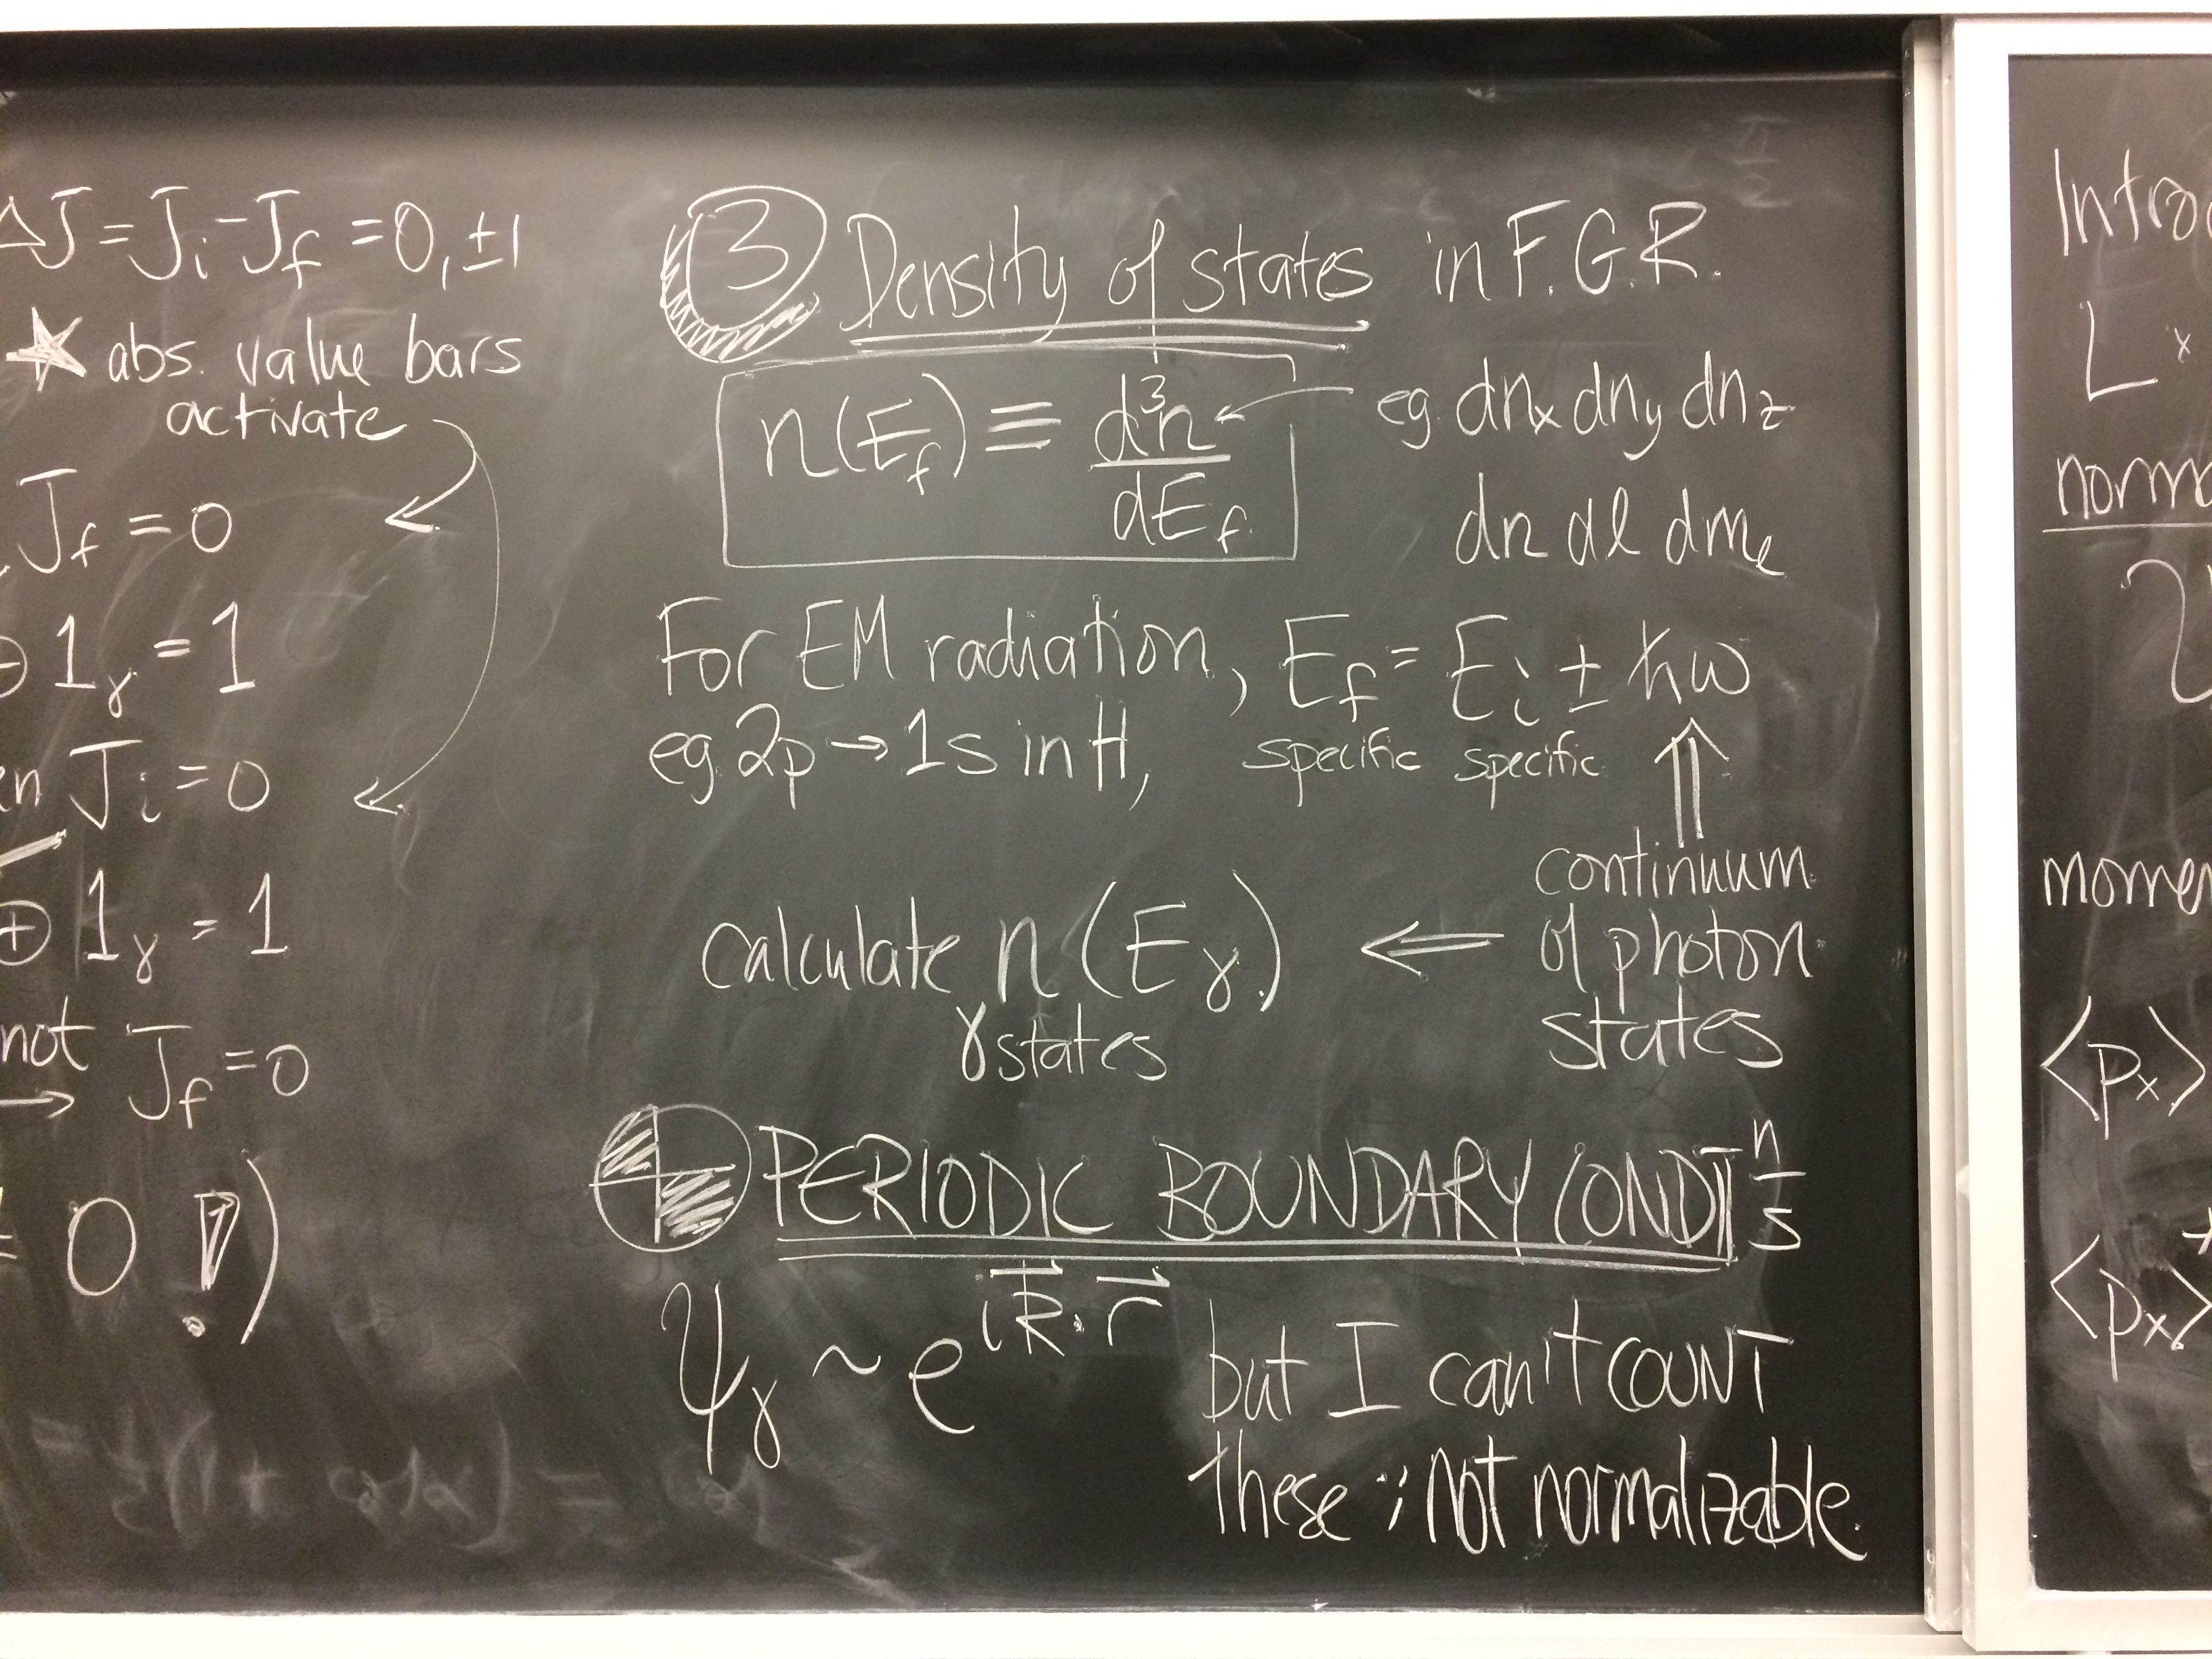 ΔJ = J_i - J_f = 0, ±1
★ abs. value bars
activate
J_f = 0
1_γ = 1
J_i = 0
⊕ 1_γ = 1
not
→ J_f = 0
= 0 !)
③ Density of states in F.G.R.
n(E_f) ≡ d³n / dE_f ← eg. dn_x dn_y dn_z
dn dl dm_l
For EM radiation, E_f = E_i ± ħω
eg. 2p → 1s in H, specific specific ⇑
continuum
calculate n(E_γ) ⇐ of photon
γ states states
④ PERIODIC BOUNDARY CONDIT n/s
ψ_γ ~ e^{i k⃗·r⃗} but I can't COUNT
these ∵ not normalizable.
L x
⟨p_x⟩
⟨p_x⟩